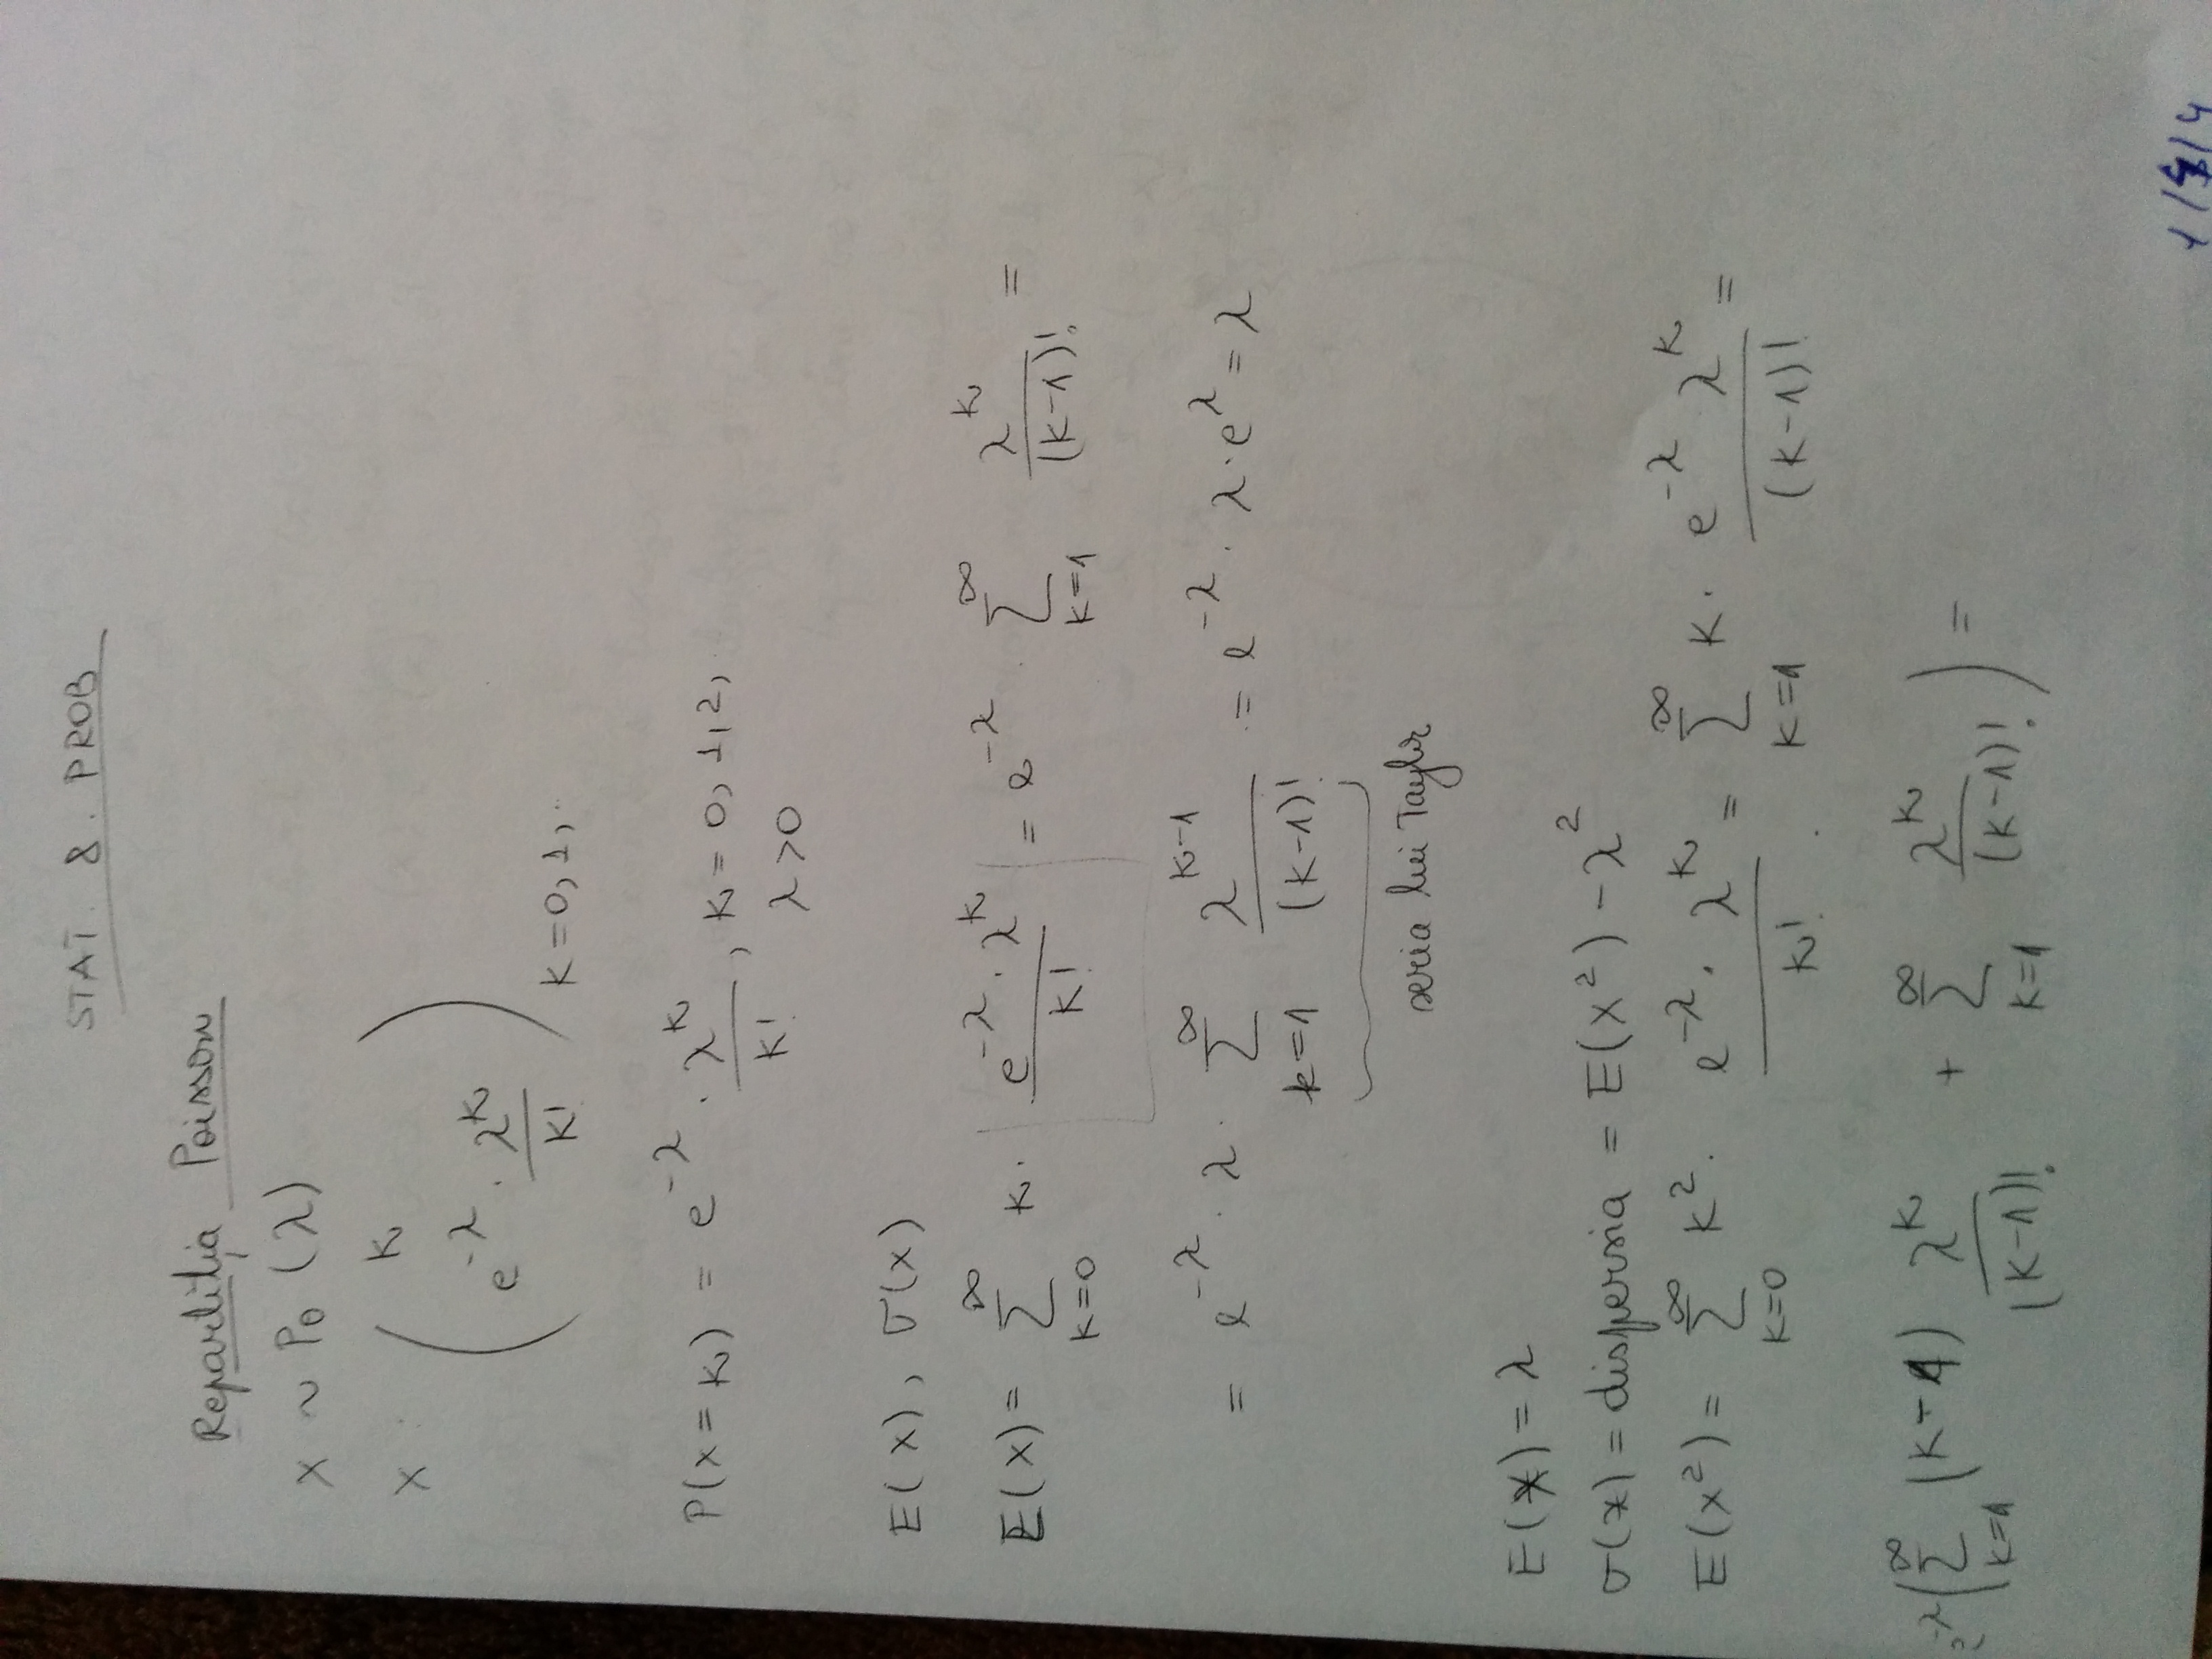 STAT. 8. PROB
Repartiția Poisson
X ~ Po (λ)
X : ( k
e^{-λ} · λ^k / k! ) k=0,1,..
P(X=k) = e^{-λ} · λ^k / k! , k = 0, 1, 2,
λ>0
E(X), σ(x)
E(X) = ∑_{k=0}^{∞} k · e^{-λ} · λ^k / k! = e^{-λ} · ∑_{k=1}^{∞} λ^k / (k-1)! =
= e^{-λ} · λ · ∑_{k=1}^{∞} λ^{k-1} / (k-1)! = e^{-λ} · λ · e^λ = λ
seria lui Taylor
E(X) = λ
σ(x) = dispersia = E(X²) - λ²
E(X²) = ∑_{k=0}^{∞} k² · e^{-λ} · λ^k / k! = ∑_{k=1}^{∞} k · e^{-λ} λ^k / (k-1)! =
e^{-λ} ( ∑_{k=1}^{∞} (k-1) λ^k / (k-1)! + ∑_{k=1}^{∞} λ^k / (k-1)! ) =